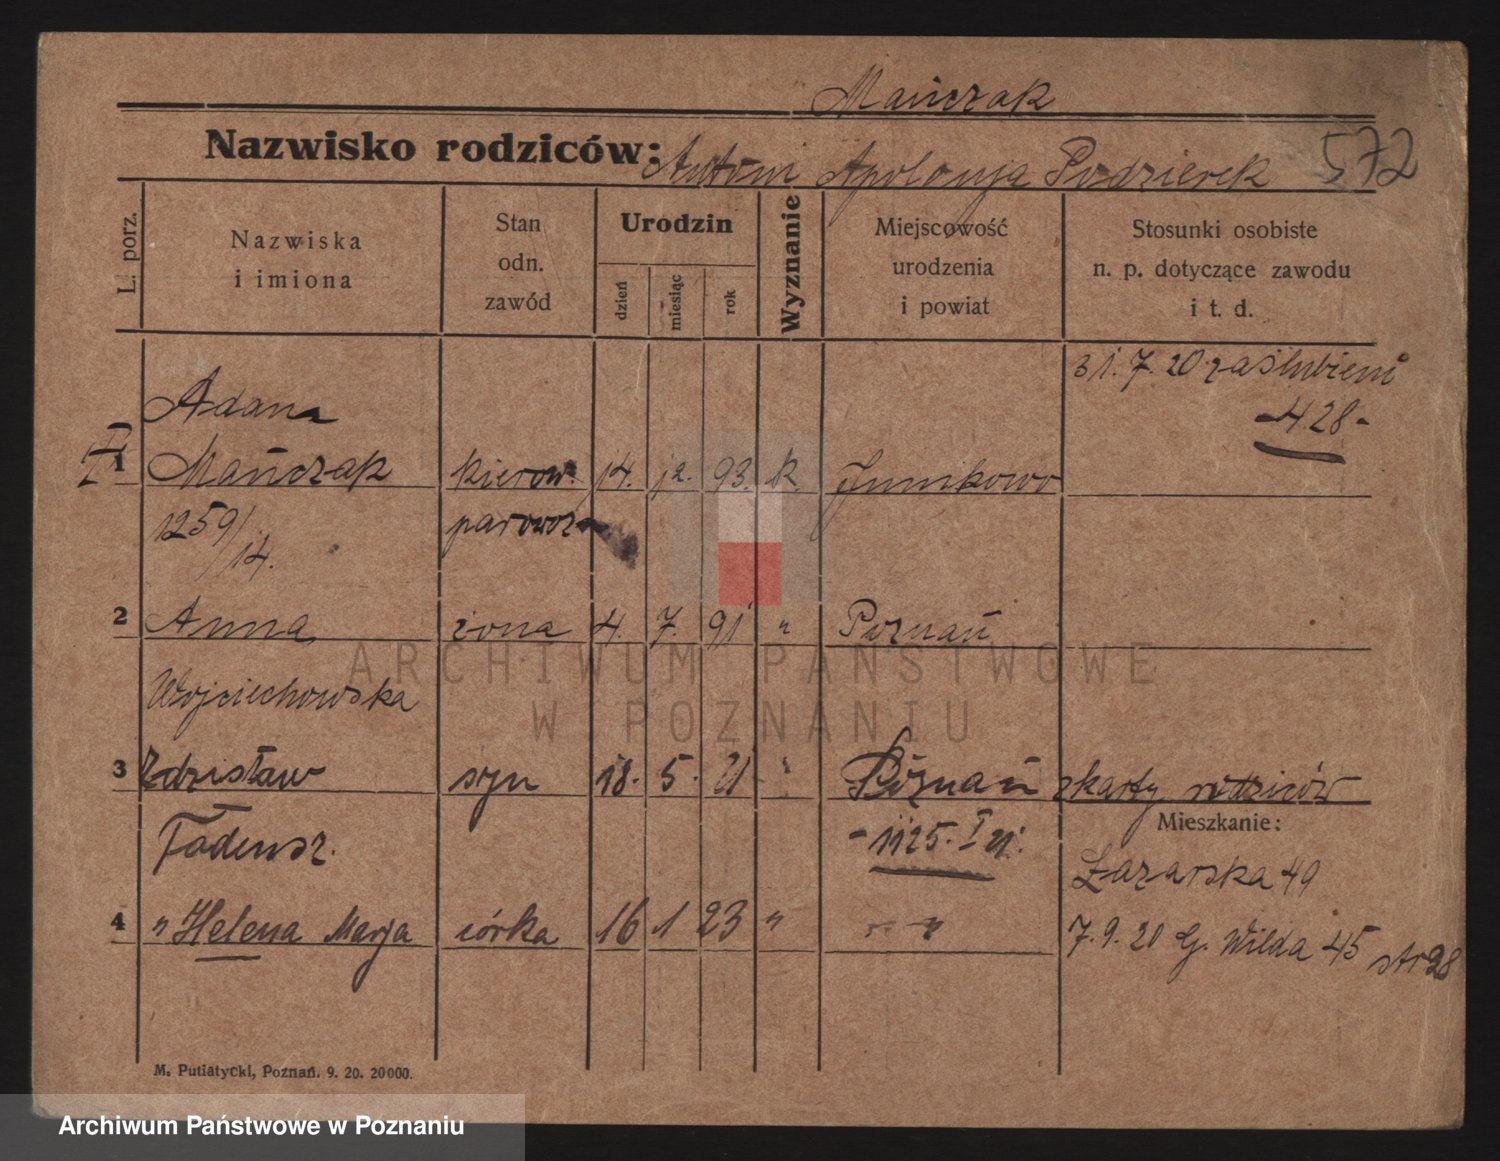 Mańczak
Nazwisko rodziców: Antoni Apolonja Podzierek 572
L. porz.
Nazwiska
i imiona
Stan
odn.
zawód
Urodzin
dzień
miesiąc
rok
Wyznanie
Miejscowość
urodzenia
i powiat
Stosunki osobiste
n. p. dotyczące zawodu
i t. d.
31.7.20 zaślubieni
-428-
Adam
1 Mańczak kierow. 14. 12. 93. k. Junikowo
1259/14. parowoz
2 Anna żona 4. 7. 91 " Poznań
Wojciechowska
3 Zdzisław syn 18. 5. 21 " Poznań z karty rodziców
Tadeusz.
Mieszkanie:
Łazarska 49
4 " Helena Marja córka 16 1 23 " " "
7.9.20 G. Wilda 45 str 28
M. Putiatycki, Poznań. 9. 20. 20000.
ARCHIWUM PAŃSTWOWE
W POZNANIU
Archiwum Państwowe w Poznaniu